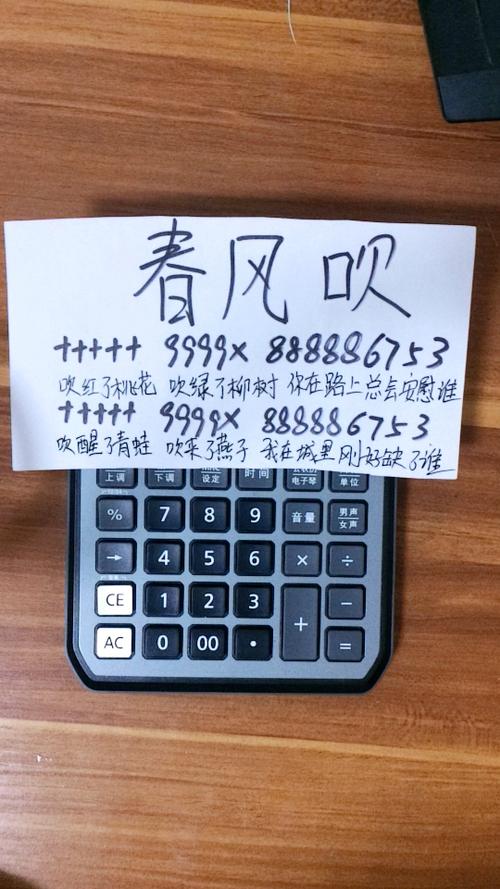 春风吹
+++++ 9999× 888886753
吹红了桃花 吹绿了柳树 你在路上总会安慰谁
+++++ 9999× 888886753
吹醒了青蛙 吹来了燕子 我在城里刚好缺了谁
上调 下调 设定 时间 电子琴 单位
% 7 8 9 音量 男声 女声
→ 4 5 6 × ÷
CE 1 2 3 + −
AC 0 00 • =